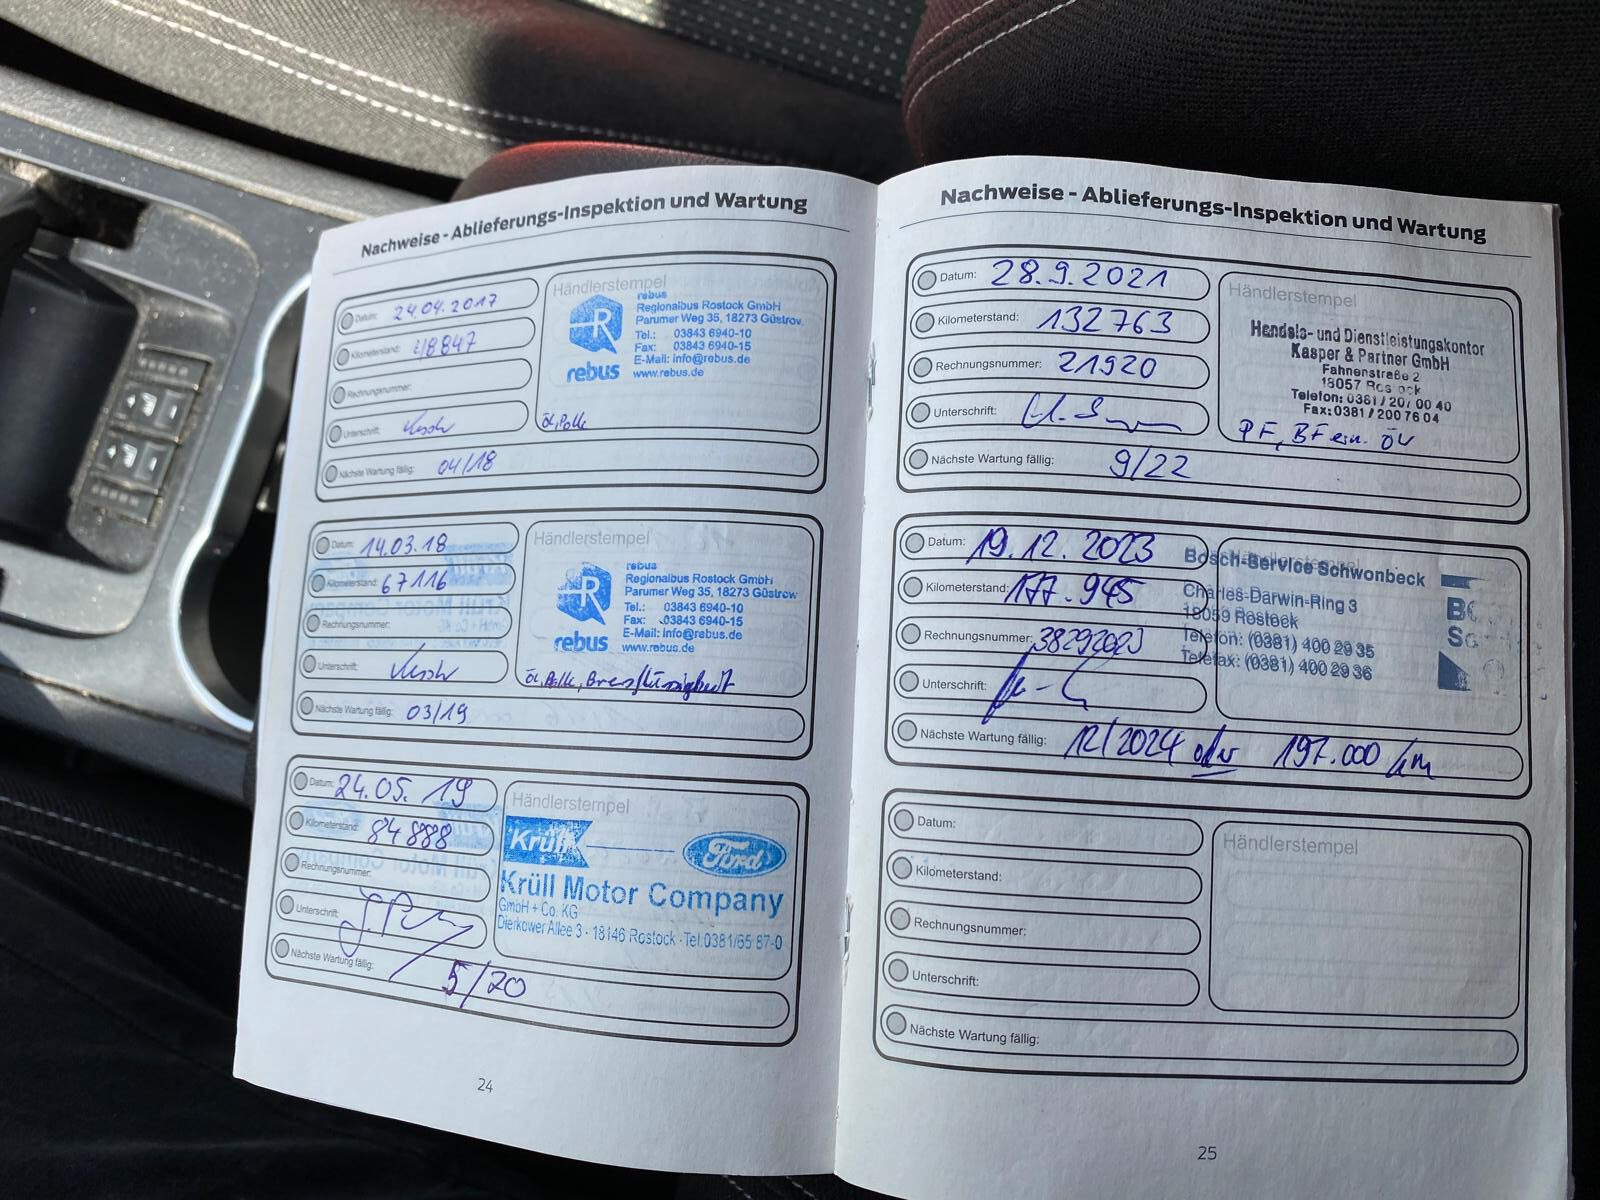 Nachweise - Ablieferungs-Inspektion und Wartung
Datum: 24.04.2017
Kilometerstand: 48847
Rechnungsnummer:
Unterschrift:
Nächste Wartung fällig: 04/18
Händlerstempel
rebus
Regionalbus Rostock GmbH
Parumer Weg 35, 18273 Güstrow
Tel.: 03843 6940-10
Fax: 03843 6940-15
E-Mail: info@rebus.de
www.rebus.de
R
rebus
Öl, Polle
Datum: 14.03.18
Kilometerstand: 67116
Rechnungsnummer:
Unterschrift:
Nächste Wartung fällig: 03/19
Händlerstempel
rebus
Regionalbus Rostock GmbH
Parumer Weg 35, 18273 Güstrow
Tel.: 03843 6940-10
Fax: 03843 6940-15
E-Mail: info@rebus.de
www.rebus.de
R
rebus
Öl, Polle,
Datum: 24.05.19
Kilometerstand: 84888
Rechnungsnummer:
Unterschrift:
Nächste Wartung fällig: 5/20
Händlerstempel
Krüll
Ford
Krüll Motor Company
GmbH + Co. KG
Dierkower Allee 3 - 18146 Rostock - Tel.0381/65 87-0
24
Nachweise - Ablieferungs-Inspektion und Wartung
Datum: 28.9.2021
Kilometerstand: 132763
Rechnungsnummer: 21920
Unterschrift:
Nächste Wartung fällig: 9/22
Händlerstempel
Handels- und Dienstleistungskontor
Kasper & Partner GmbH
Fahnenstraße 2
18057 Rostock
Telefon: 0381 / 20/ 00 40
Fax: 0381 / 200 76 04
PF, BF ern. ÖV
Datum: 19.12.2023
Kilometerstand: 177.945
Rechnungsnummer: 38292023
Unterschrift:
Nächste Wartung fällig: 12/2024 oder 197.000 km
Händlerstempel
Bosch-Service Schwonbeck
Charles-Darwin-Ring 3
18059 Rostock
Telefon: (0381) 400 29 35
Telefax: (0381) 400 29 36
Datum:
Kilometerstand:
Rechnungsnummer:
Unterschrift:
Nächste Wartung fällig:
Händlerstempel
25